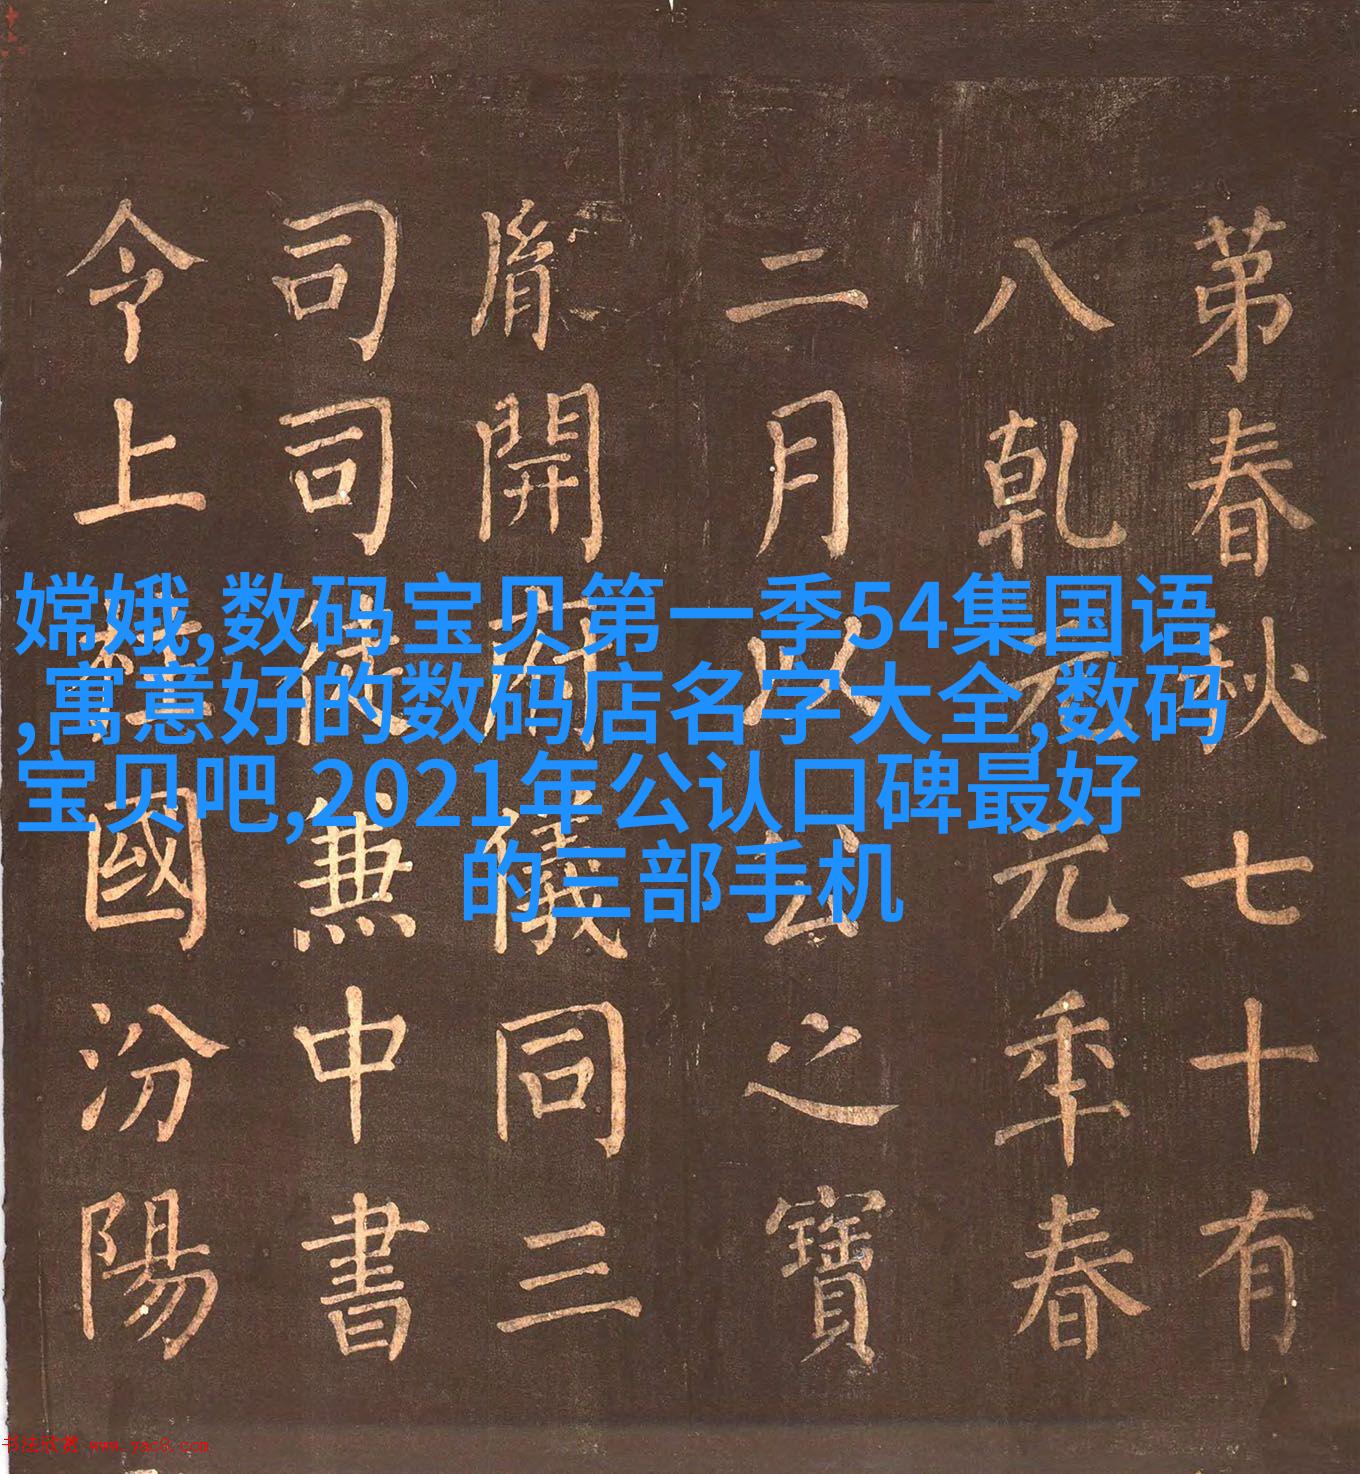 苐春秋七十有
八乾元元年春
二月以公之寶
胤開府儀同三
司司徒兼中書
令上柱國汾陽
嫦娥,数码宝贝第一季54集国语
,寓意好的数码店名字大全,数码
宝贝吧,2021年公认口碑最好
的三部手机
书法欣赏 www.yac8.com